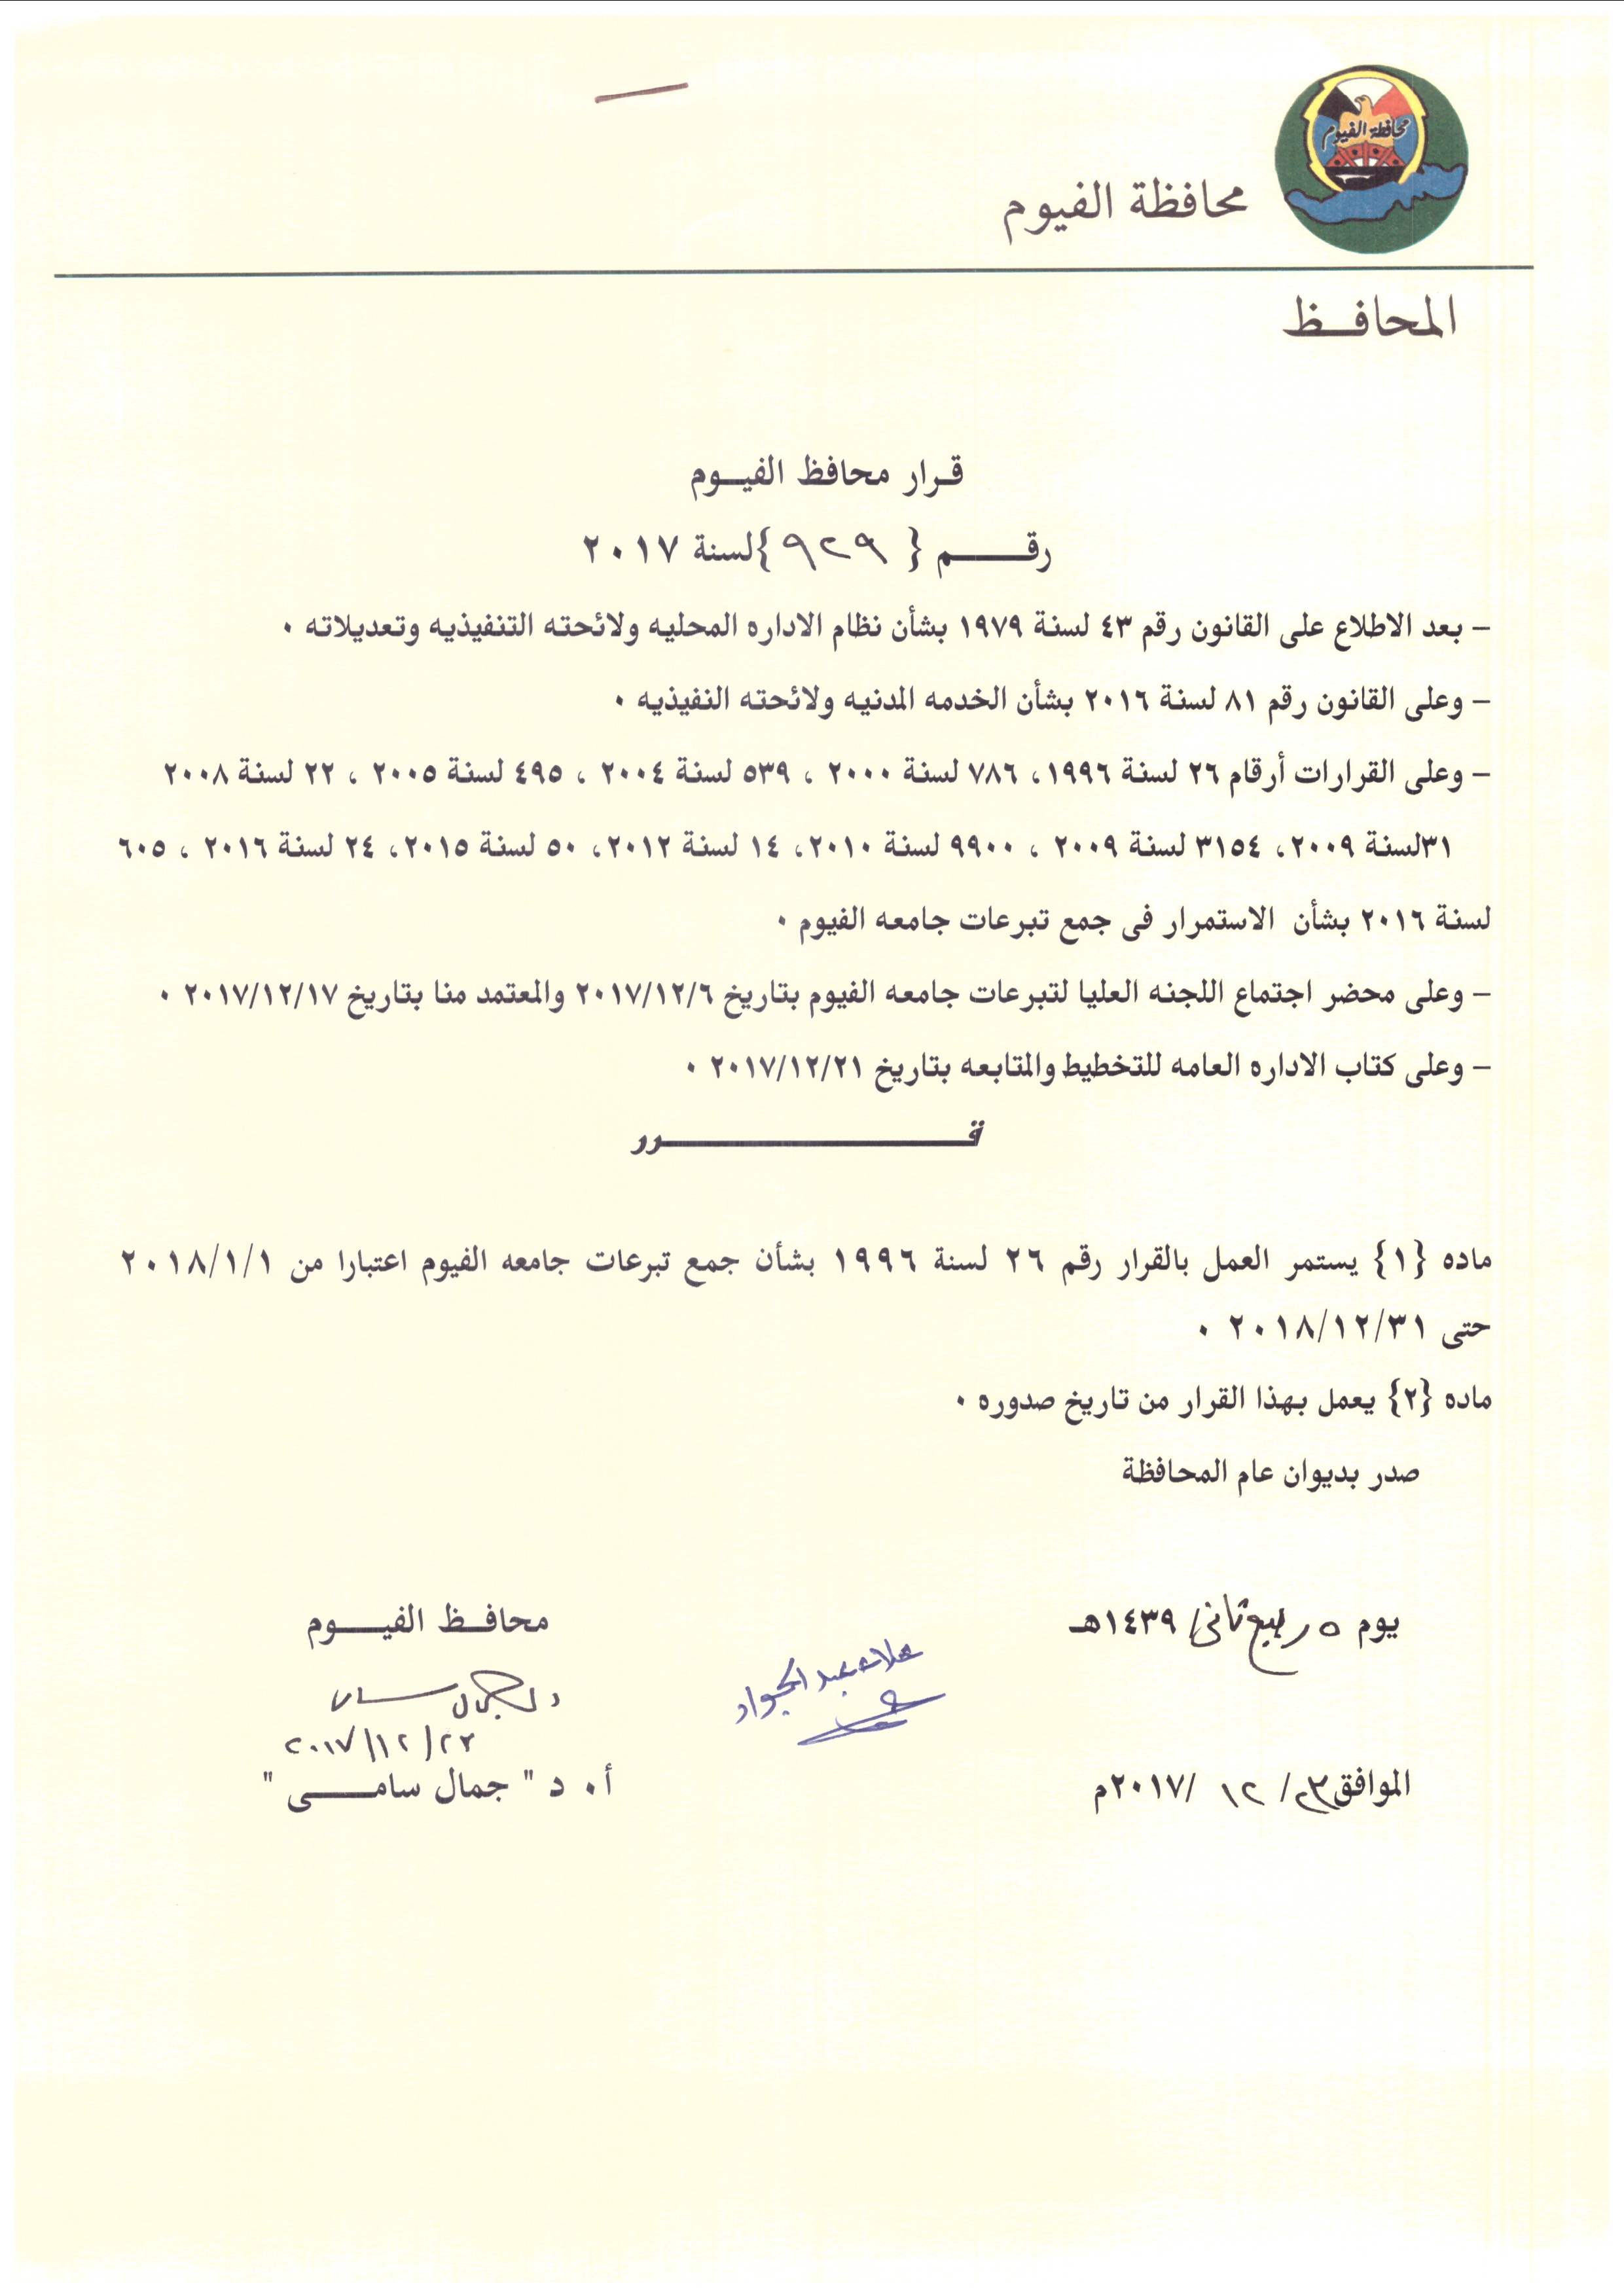 محافظة الفيوم
محافظة الفيوم
المحافـــظ
قـرار محافظ الفيـــوم
رقـــــــم { ٩٢٩ }لسنة ٢٠١٧
– بعد الاطلاع على القانون رقم ٤٣ لسنة ١٩٧٩ بشأن نظام الاداره المحليه ولائحته التنفيذيه وتعديلاته ٠
– وعلى القانون رقم ٨١ لسنة ٢٠١٦ بشأن الخدمه المدنيه ولائحته النفيذيه ٠
– وعلى القرارات أرقام ٢٦ لسنة ١٩٩٦، ٧٨٦ لسنة ٢٠٠٠ ، ٥٣٩ لسنة ٢٠٠٤ ، ٤٩٥ لسنة ٢٠٠٥ ، ٢٢ لسنة ٢٠٠٨
٣١لسنة ٢٠٠٩، ٣١٥٤ لسنة ٢٠٠٩ ، ٩٩٠٠ لسنة ٢٠١٠، ١٤ لسنة ٢٠١٢، ٥٠ لسنة ٢٠١٥، ٢٤ لسنة ٢٠١٦ ، ٦٠٥
لسنة ٢٠١٦ بشأن الاستمرار فى جمع تبرعات جامعه الفيوم ٠
– وعلى محضر اجتماع اللجنه العليا لتبرعات جامعه الفيوم بتاريخ ٢٠١٧/١٢/٦ والمعتمد منا بتاريخ ٢٠١٧/١٢/١٧ ٠
– وعلى كتاب الاداره العامه للتخطيط والمتابعه بتاريخ ٢٠١٧/١٢/٢١ ٠
قــــــــــــــــــــرر
ماده {١} يستمر العمل بالقرار رقم ٢٦ لسنة ١٩٩٦ بشأن جمع تبرعات جامعه الفيوم اعتبارا من ٢٠١٨/١/١
حتى ٢٠١٨/١٢/٣١ ٠
ماده {٢} يعمل بهذا القرار من تاريخ صدوره ٠
صدر بديوان عام المحافظة
يوم ٥ ربيع ثانى/ ١٤٣٩هـ
محافـــظ الفيـــــوم
علاء عبد الجواد
٢٠١٧/١٢/٢٣
الموافق٢٣/ ١٢ /٢٠١٧م
أ٠ د " جمال سامـــــــى "